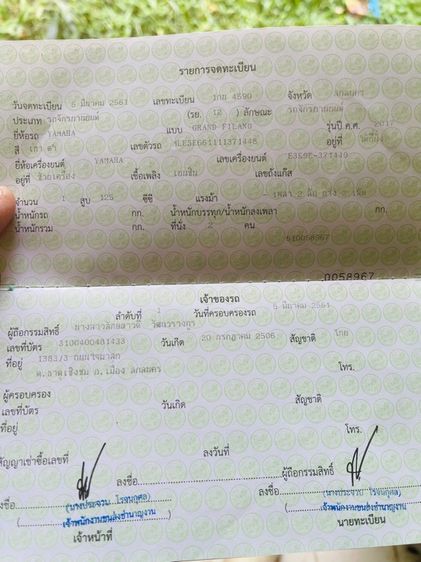 รายการจดทะเบียน
วันจดทะเบียน 5 มีนาคม 2561 เลขทะเบียน 1กย 4590 จังหวัด สกลนคร
ประเภท รถจักรยานยนต์ (รย. 12 ) ลักษณะ รถจักรยานยนต์
ยี่ห้อรถ YAMAHA แบบ GRAND FILANO รุ่นปี ค.ศ. 2017
สี เทา ดำ เลขตัวรถ MLESE661111371448 อยู่ที่
ยี่ห้อเครื่องยนต์ YAMAHA เลขเครื่องยนต์ E3E9E-371440
อยู่ที่ ซ้ายเครื่อง เชื้อเพลิง เบนซิน เลขถังแก๊ส
จำนวน 1 สูบ 125 ซีซี แรงม้า - เพลา 2 ล้อ ยาง 2 เส้น
น้ำหนักรถ กก. น้ำหนักบรรทุก/น้ำหนักลงเพลา กก.
น้ำหนักรวม กก. ที่นั่ง 2 คน
610058967
0058967
เจ้าของรถ
ลำดับที่ 1 วันที่ครอบครองรถ 5 มีนาคม 2561
ผู้ถือกรรมสิทธิ์
เลขที่บัตร 3100400481433 วันเกิด 20 กรกฎาคม 2506 สัญชาติ ไทย
ที่อยู่ 1383/3
ต.ธาตุเชิงชุม อ.เมือง สกลนคร โทร.
ผู้ครอบครอง
เลขที่บัตร วันเกิด สัญชาติ
ที่อยู่ โทร.
สัญญาเช่าซื้อเลขที่ ลงวันที่
ลงชื่อ ผู้ถือกรรมสิทธิ์
ลงชื่อ ลงชื่อ
(นางประจวบ โรจนกุศล) (นางประจวบ โรจนกุศล)
เจ้าพนักงานขนส่งชำนาญงาน เจ้าพนักงานขนส่งชำนาญงาน
เจ้าหน้าที่ นายทะเบียน